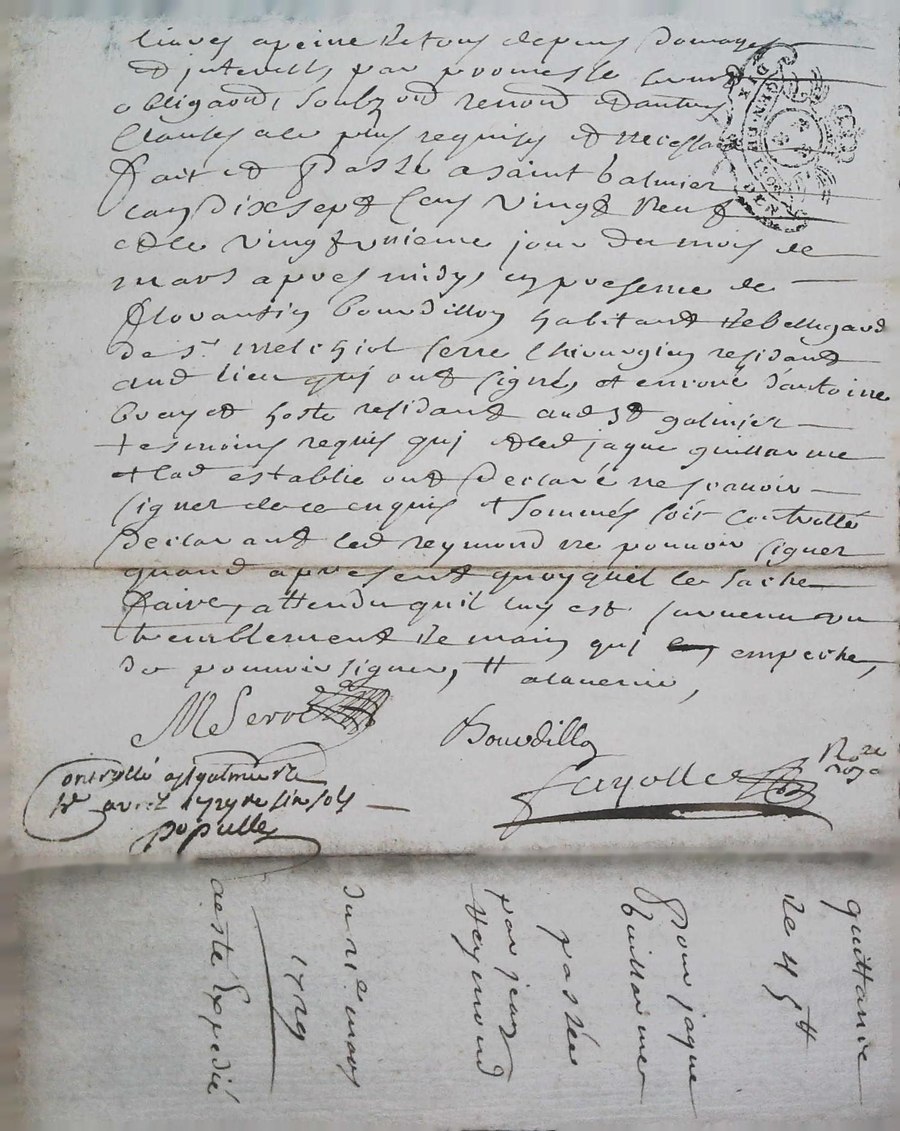 a peine de tous depens domages
et interests, par promesse
obligaōn, soubz on renon et autres
clauses a ce plus requises et necessai
fait et passé a saint Galmier
l'an dix sept cens vingt neuf
et le vingt unieme jour du mois de
mars apres midy, en presence de
Florantin Bourdillon habitant de Bellegard
de Sr Melchiol Serre Chirurgien residant
aud lieu quj ont signés, et encore d'antoine
hoste residant aud St galmier
tesmoins requis quj et led jaque guillarme
et lad establie ont declaré ne scavoir
signer de ce enquis et sommés soit controllé
declarant led reymond ne pouvoir signer
quand apresent quoyquil le sache
faire, attendu quil luy est survenu un
tremblement de main quj empeche,
de pouvoir signer, //
MSerre
Bourdillon
Fayolle Nore
royal
Controllé a St galmier le
avril 1729 re six sols
populle
quittance
de 45tt
pour jaque
Guillarme
passée
par jean
Reymond
du 21e mars
1729
a esté Expedié
DIX